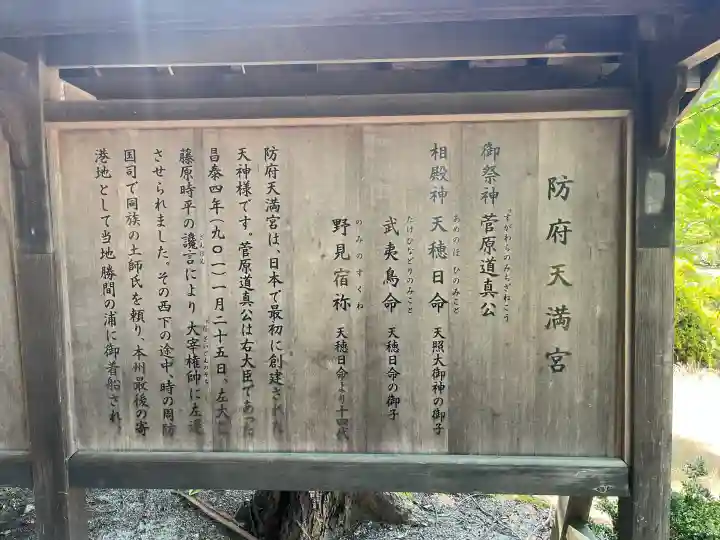 防府天満宮
御祭神 菅原道真公
すがわらのみちざねこう
相殿神 天穂日命 天照大御神の御子
あめのほ ひのみこと
武夷鳥命 天穂日命の御子
たけひなどりのみこと
野見宿祢 天穂日命より十四代
のみのすくね
防府天満宮は、日本で最初に創建された
天神様です。菅原道真公は右大臣であった
昌泰四年（九〇一）一月二十五日、左大臣
藤原時平の讒言により 大宰権帥に左遷
させられました。その西下の途中、時の周防
国司で同族の土師氏を頼り、本州最後の寄
港地として当地 勝間の浦に御着船され、